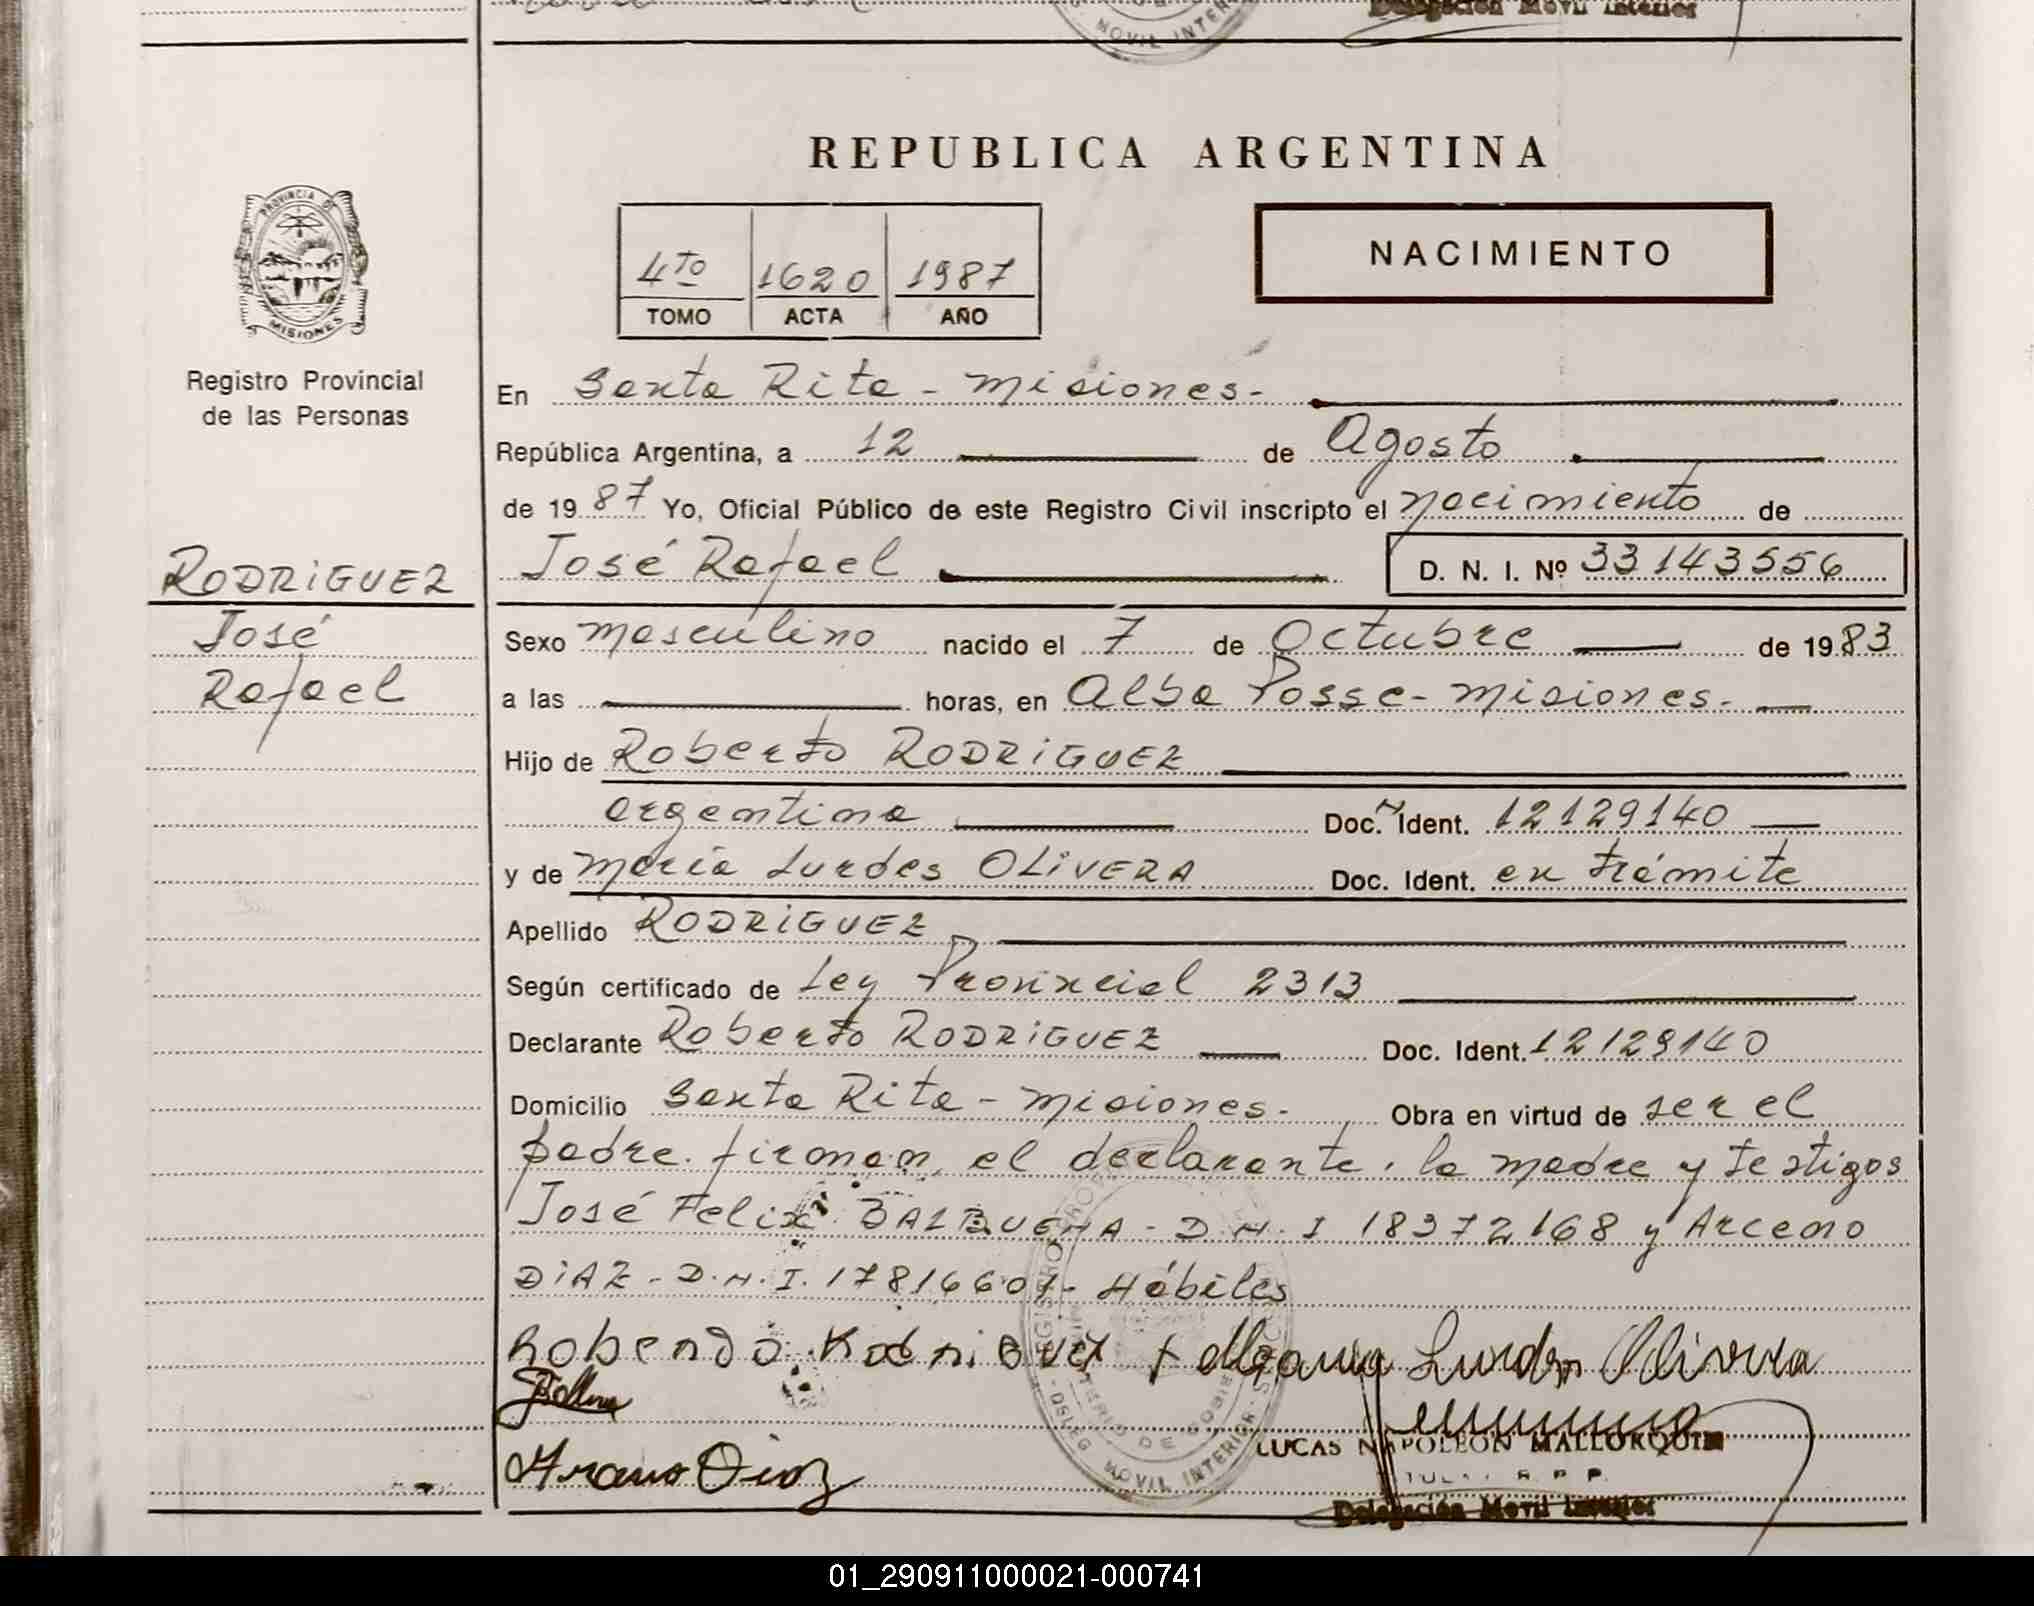 Delegación Movil Interior
MOVIL INTER
REPUBLICA ARGENTINA
PROVINCIA DE
MISIONES
Registro Provincial
de las Personas
4to 1620 1987
TOMO ACTA AÑO
NACIMIENTO
En Santa Rita - Misiones -
República Argentina, a 12 de Agosto
de 1987 Yo, Oficial Público de este Registro Civil inscripto el nacimiento de
José Rafael D. N. I. Nº 33143556
RODRIGUEZ
José
Rafael
Sexo masculino nacido el 7 de Octubre de 1983
a las horas, en Alba Posse - Misiones -
Hijo de Roberto RODRIGUEZ
argentino Doc. Ident. 12129140
y de María Lurdes OLIVERA Doc. Ident. en trámite
Apellido RODRIGUEZ
Según certificado de Ley Provincial 2313
Declarante Roberto RODRIGUEZ Doc. Ident. 12129140
Domicilio Santa Rita - Misiones - Obra en virtud de ser el
padre. firman el declarante, la madre y testigos
José Felix BALBUENA - D.N.I 18372168 y Arceno
DIAZ - D.N.I. 17816607 - Hábiles
Maria Lurdes Olivera
LUCAS NAPOLEON MALLORQUIN
TITULAR R. P. P.
Delegación Movil Interior
MOVIL INTERIOR
01_290911000021-000741